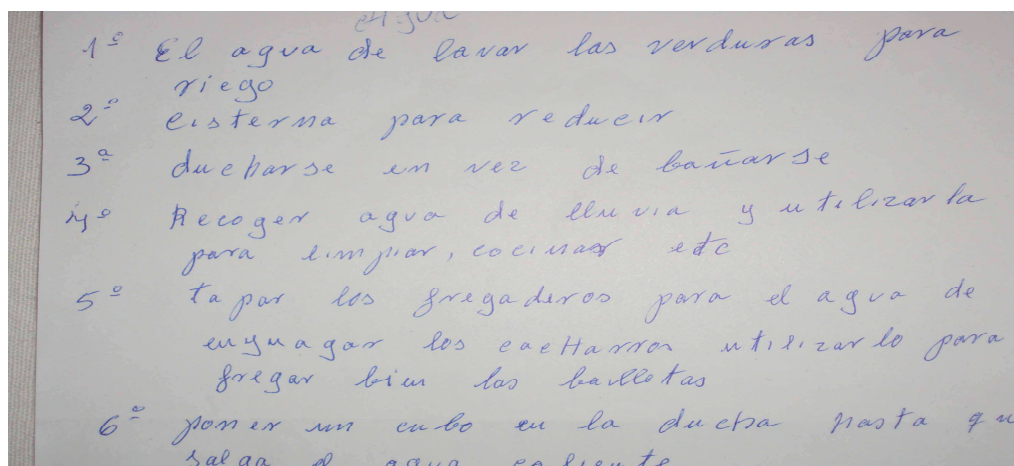 Agua
1º El agua de lavar las verduras para
riego
2º cisterna para reducir
3º ducharse en vez de bañarse
4º Recoger agua de lluvia y utilizarla
para limpiar, cocinar etc
5º tapar los fregaderos para el agua de
enjuagar los cacharros utilizarlo para
fregar bien las balletas
6º poner un cubo en la ducha hasta qu
salga el agua caliente